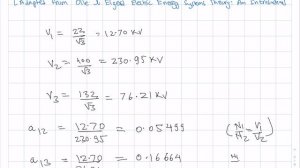 from Olle I. Elgerd Electric Energy Systems Theory: An Introduction
V₁ = 22/√3 = 12.70 KV
V₂ = 400/√3 = 230.95 KV
V₃ = 132/√3 = 76.21 KV
a₁₂ = 12.70/230.95 = 0.05499 (N₁/N₂ = V₁/V₂)
a₁₃ = 12.70/76.21 = 0.16664